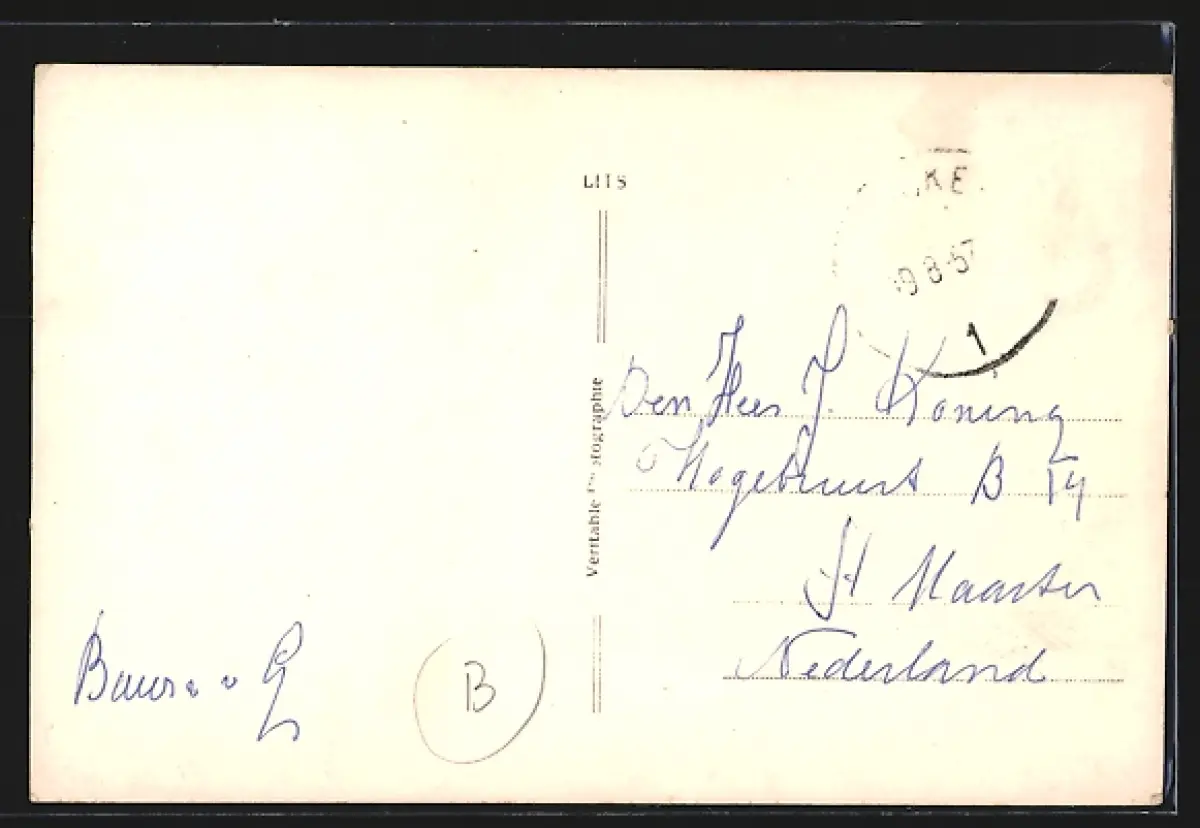 LITS
KE
9 8-57
1
Veritable Photographie
Den Heer J. Koning
Hogebuurt B 14
St Maarten
Nederland
B